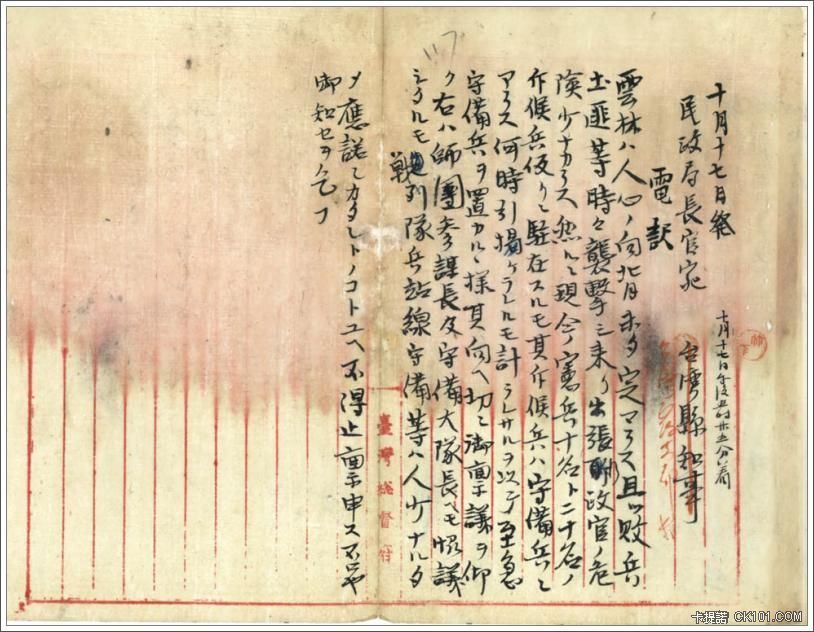 十月十七日発
十月十七日午後五時廿五分着
民政局長官宛
台湾縣知事
電訳
雲林ハ人心ノ向背未タ定マラス且ツ敗兵
土匪等時々襲撃シ来リ出張所政官ノ危
険少ナカラス然ルニ現今ノ憲兵十名ト二十名ノ
斥候兵便リニ駐在スルモ其斥候兵ハ守備兵ニ
アラス何時引揚ケラルルモ計ラレサルヲ以テ至急
守備兵ヲ置カルル様其向ヘ切ニ御稟議ヲ仰
ク右ハ師團参謀長及守備大隊長ヘモ協議
シタルモ戦列隊兵站線守備等ハ人少ナルタ
メ應諾シカタシトノコトユヘ不得止稟申ス
御知セヲ乞フ
臺灣總督府
卡提諾 CK101.COM